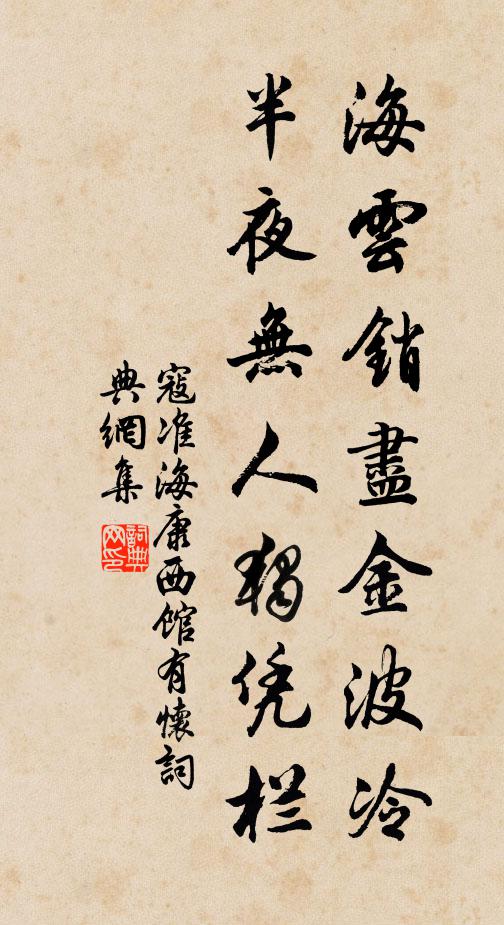 海雲銷盡金波冷
半夜無人獨凭栏
寇准海康西館有懷詞
典網集
詞典網印